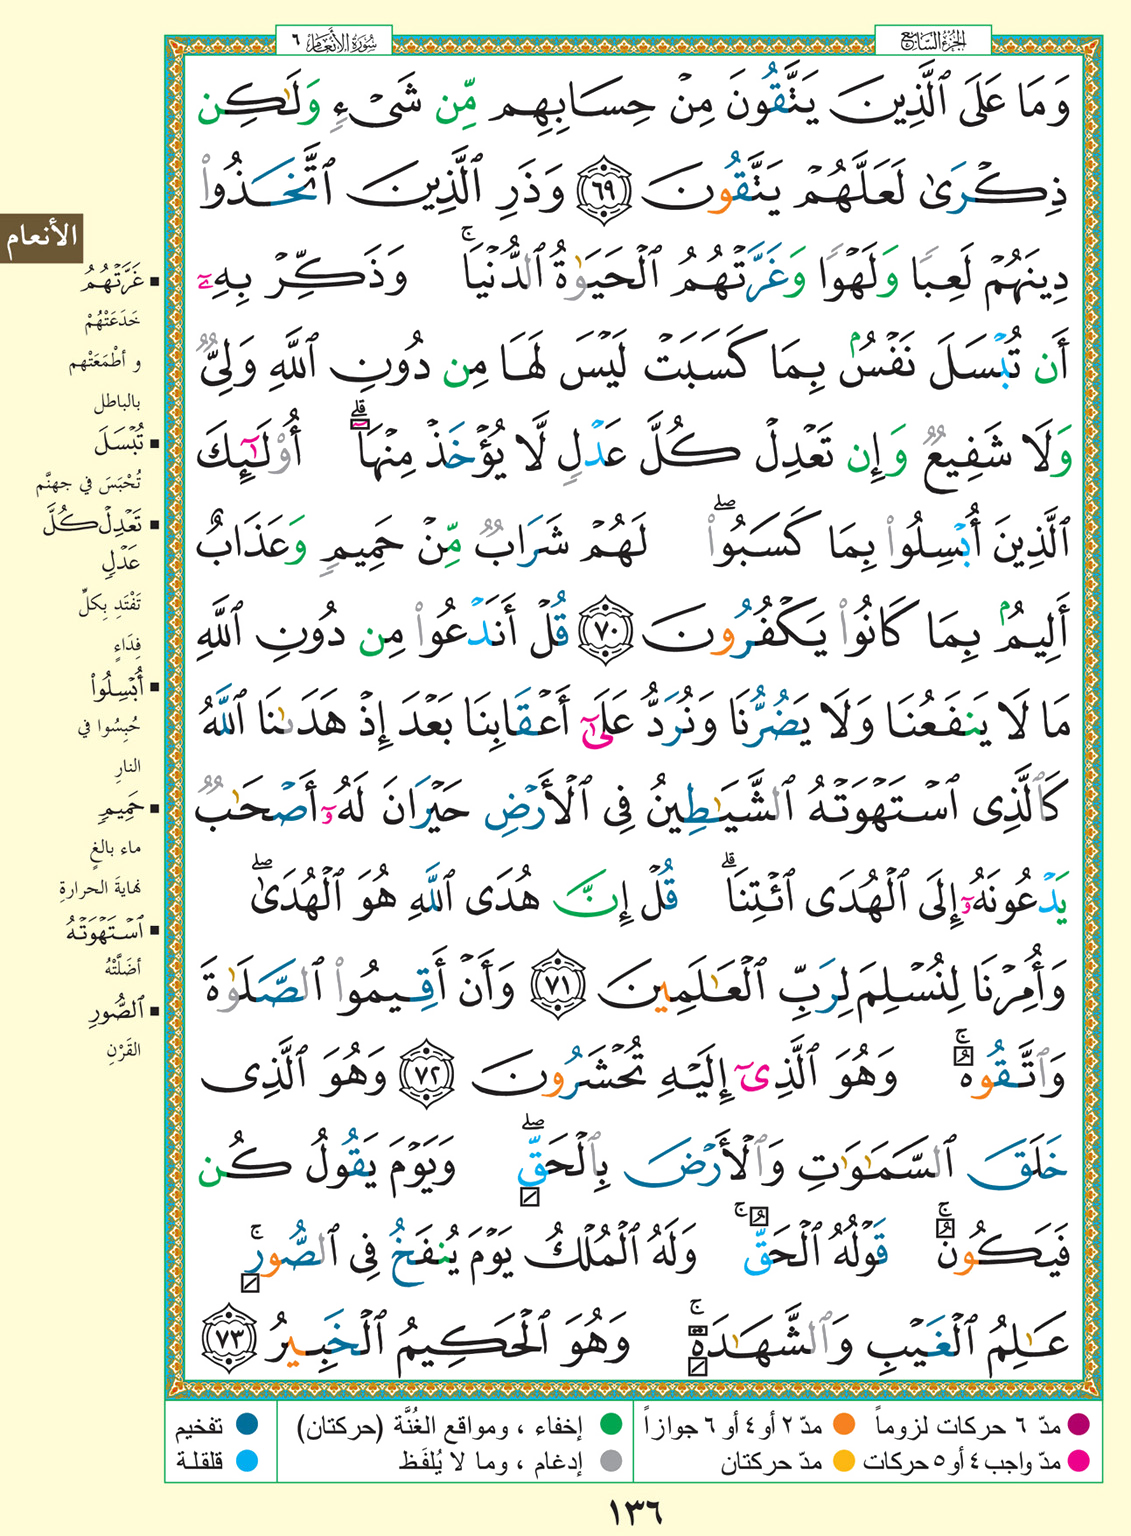 سُورَةُ الأَنْعَام ٦
الجُزْءُ السَّابِع
وَمَا عَلَى ٱلَّذِينَ يَتَّقُونَ مِنْ حِسَابِهِم مِّن شَىْءٍ وَلَٰكِن
ذِكْرَىٰ لَعَلَّهُمْ يَتَّقُونَ ٦٩ وَذَرِ ٱلَّذِينَ ٱتَّخَذُوا۟
دِينَهُمْ لَعِبًا وَلَهْوًا وَغَرَّتْهُمُ ٱلْحَيَوٰةُ ٱلدُّنْيَا ۚ وَذَكِّرْ بِهِۦٓ
أَن تُبْسَلَ نَفْسٌۢ بِمَا كَسَبَتْ لَيْسَ لَهَا مِن دُونِ ٱللَّهِ وَلِىٌّ
وَلَا شَفِيعٌ وَإِن تَعْدِلْ كُلَّ عَدْلٍ لَّا يُؤْخَذْ مِنْهَآ ۗ أُو۟لَٰٓئِكَ
ٱلَّذِينَ أُبْسِلُوا۟ بِمَا كَسَبُوا۟ ۖ لَهُمْ شَرَابٌ مِّنْ حَمِيمٍ وَعَذَابٌ
أَلِيمٌۢ بِمَا كَانُوا۟ يَكْفُرُونَ ٧٠ قُلْ أَنَدْعُوا۟ مِن دُونِ ٱللَّهِ
مَا لَا يَنفَعُنَا وَلَا يَضُرُّنَا وَنُرَدُّ عَلَىٰٓ أَعْقَابِنَا بَعْدَ إِذْ هَدَىٰنَا ٱللَّهُ
كَٱلَّذِى ٱسْتَهْوَتْهُ ٱلشَّيَٰطِينُ فِى ٱلْأَرْضِ حَيْرَانَ لَهُۥٓ أَصْحَٰبٌ
يَدْعُونَهُۥٓ إِلَى ٱلْهُدَى ٱئْتِنَا ۗ قُلْ إِنَّ هُدَى ٱللَّهِ هُوَ ٱلْهُدَىٰ ۖ
وَأُمِرْنَا لِنُسْلِمَ لِرَبِّ ٱلْعَٰلَمِينَ ٧١ وَأَنْ أَقِيمُوا۟ ٱلصَّلَوٰةَ
وَٱتَّقُوهُ ۚ وَهُوَ ٱلَّذِىٓ إِلَيْهِ تُحْشَرُونَ ٧٢ وَهُوَ ٱلَّذِى
خَلَقَ ٱلسَّمَٰوَٰتِ وَٱلْأَرْضَ بِٱلْحَقِّ ۖ وَيَوْمَ يَقُولُ كُن
فَيَكُونُ ۚ قَوْلُهُ ٱلْحَقُّ ۚ وَلَهُ ٱلْمُلْكُ يَوْمَ يُنفَخُ فِى ٱلصُّورِ ۚ
عَٰلِمُ ٱلْغَيْبِ وَٱلشَّهَٰدَةِ ۚ وَهُوَ ٱلْحَكِيمُ ٱلْخَبِيرُ ٧٣
الأنعام
▪ غَرَّتْهُمُ
خَدَعَتْهُمْ
و أَطْمَعَتْهم
بالباطل
▪ تُبْسَلَ
تُحْبَسَ في جهنَّم
▪ تَعْدِلْ كُلَّ
عَدْلٍ
تَفْتَدِ بِكلِّ
فِدَاءٍ
▪ أُبْسِلُوا۟
حُبِسُوا في
النارِ
▪ حَمِيمٍ
ماء بالغٍ
نهايةَ الحرارةِ
▪ ٱسْتَهْوَتْهُ
أضَلَّتْهُ
▪ ٱلصُّورِ
القَرْنِ
مدّ ٦ حركات لزوماً
مدّ ٢ أو ٤ أو ٦ جوازاً
إخفاء ، ومواقع الغُنَّة (حركتان)
تفخيم
مدّ واجب ٤ أو ٥ حركات
مدّ حركتان
إدغام ، وما لا يُلفَظ
قلقلة
١٣٦